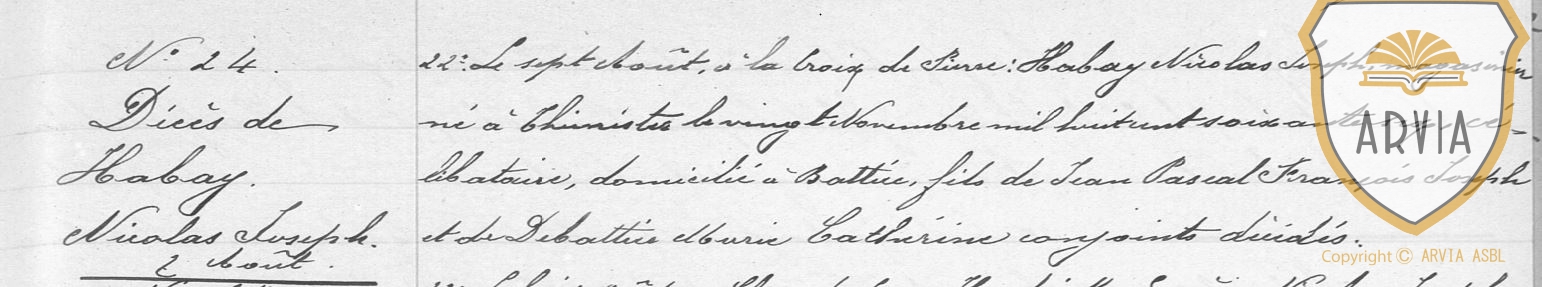 N° 24.
Décès de
Habay.
Nicolas Joseph.
7 Août.
22° Le sept Août, à la Croix de Pierre: Habay Nicolas Joseph, magasinier
né à Thimister le vingt Novembre mil huit cent soixante cé-
libataire, domicilié à Battice, fils de Jean Pascal François Joseph
et de Debattice Marie Catherine conjoints décédés.
ARVIA
Copyright © ARVIA ASBL